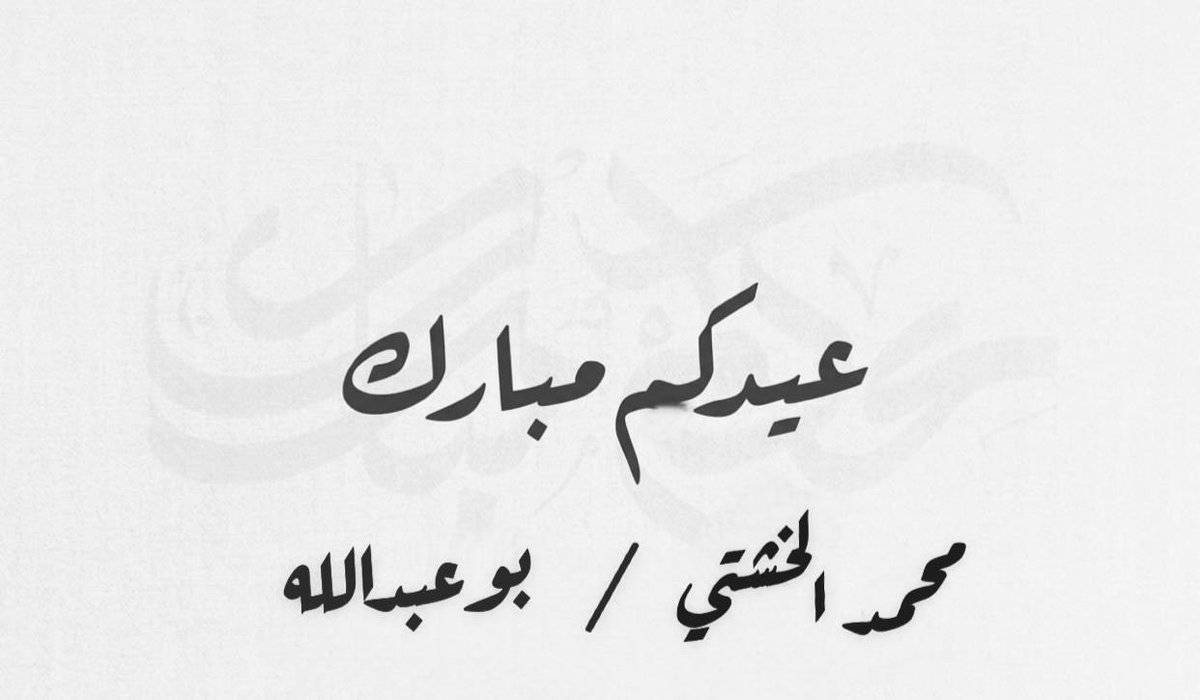 عيدكم مبارك
محمد الخشتي / بوعبدالله